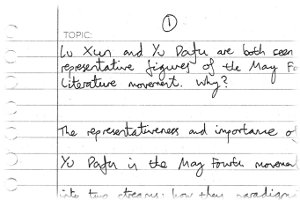 1
TOPIC:
Lu Xun and Yu Dafu are both seen
representative figures of the May F
Literature movement. Why?
The representativeness and importance o
Yu Dafu in the May Fourth movemen
into two streams: how their paradigm